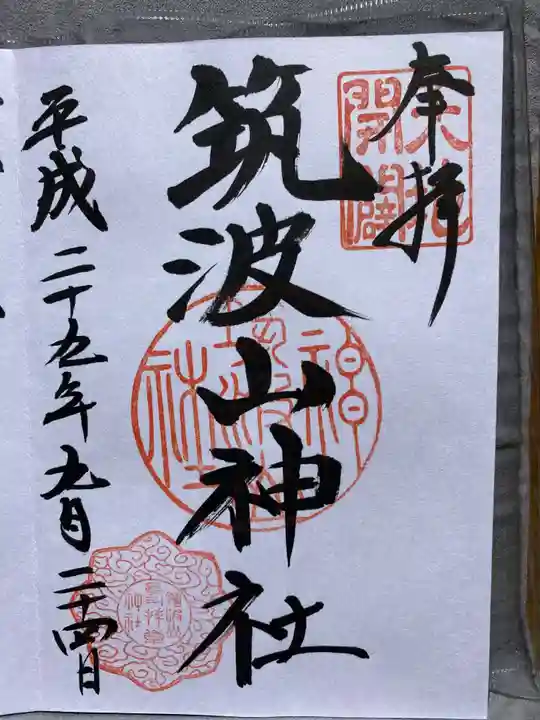 奉拝
天地
開闢
筑波山神社
筑波山
神社
平成二十九年九月二十四日